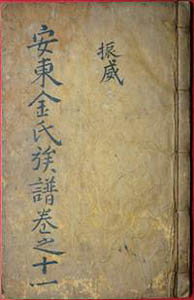 振威
安東金氏族譜卷之十一